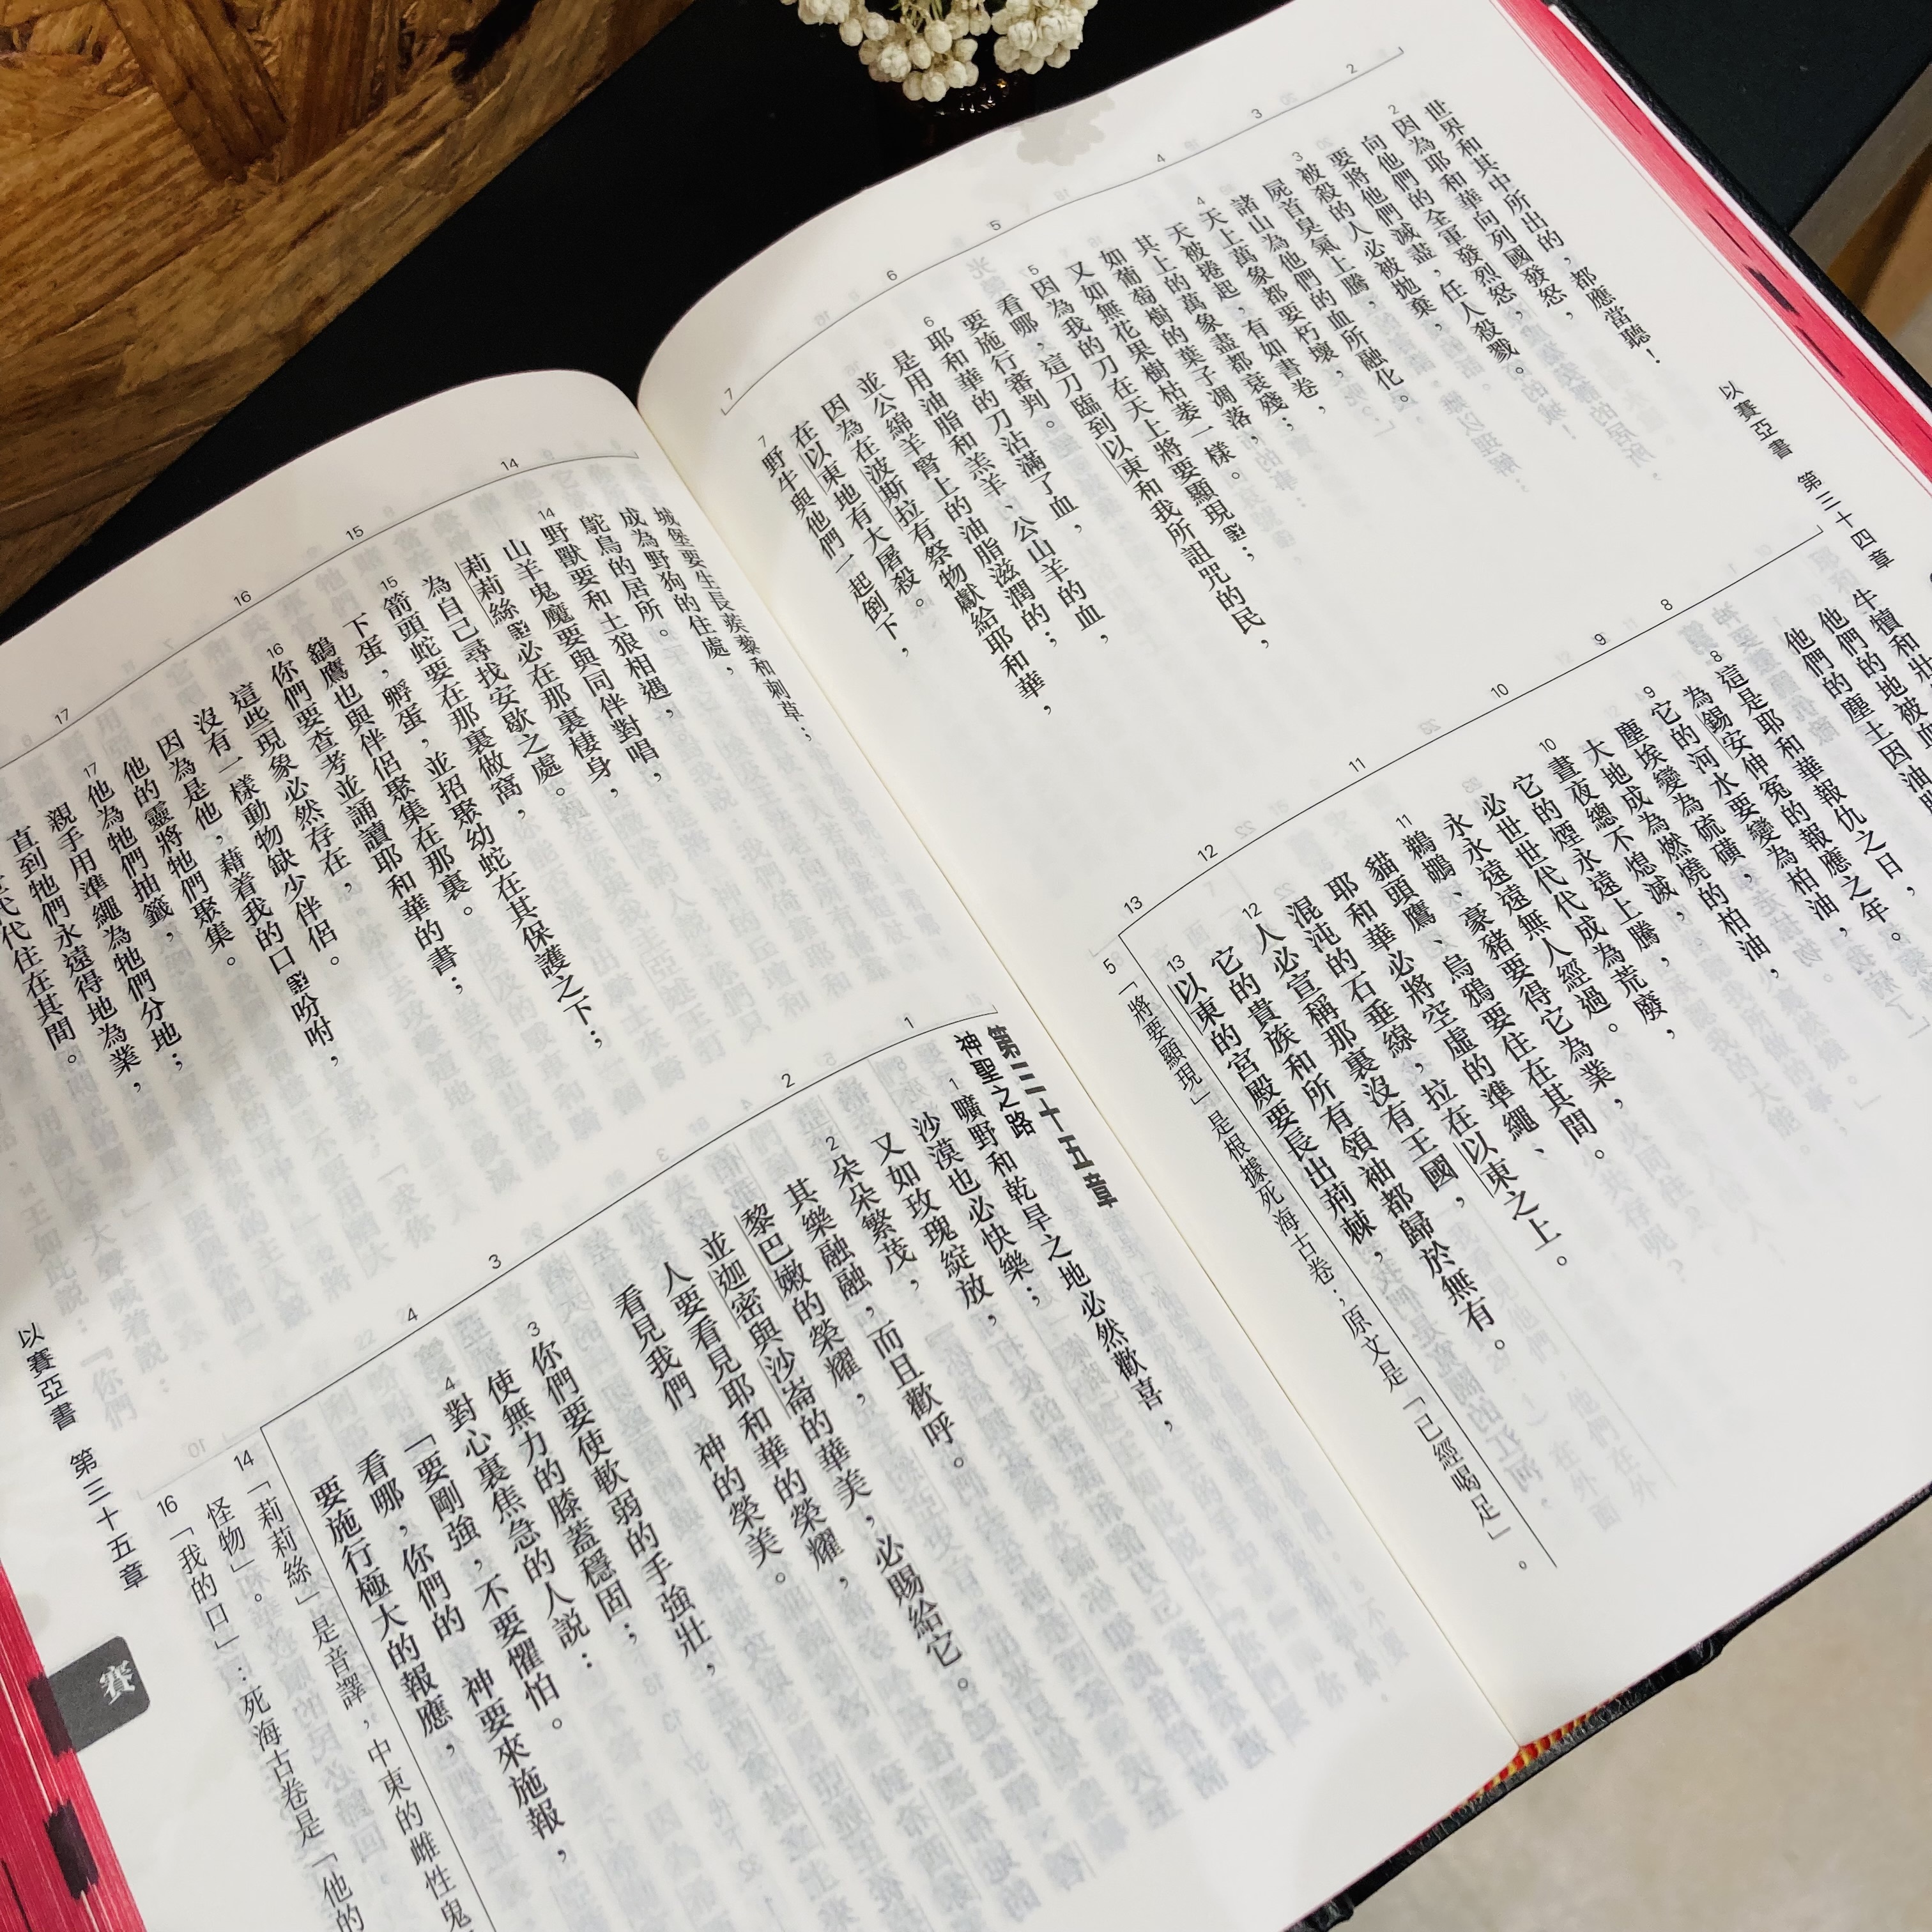 以賽亞書 第三十四章
世界和其中所出的,都應當聽!
2因為耶和華向列國發怒,
向他們的全軍發烈怒,
要將他們滅盡,任人殺戮。
3被殺的人必被拋棄,
屍首臭氣上騰,
諸山為他們的血所融化。
4天上萬象都要朽壞,
天被捲起,有如書卷,
其上的萬象盡都衰殘;
如葡萄樹的葉子凋落,
又如無花果樹枯萎一樣。
5因為我的刀在天上將要顯現;
看哪,這刀臨到以東和我所詛咒的民,
要施行審判。
6耶和華的刀沾滿了血,
是用油脂和羔羊、公山羊的血,
並公綿羊腎上的油脂滋潤的;
因為在波斯拉有祭物獻給耶和華,
在以東地有大屠殺。
7野牛與他們一起倒下,
牛犢和壯
他們的地被血
他們的塵土因油脂
8這是耶和華報仇之日,
為錫安伸冤的報應之年。
9它的河水要變為柏油,
塵埃變為硫磺,
大地成為燃燒的柏油,
10晝夜總不熄滅,
它的煙永遠上騰,
必世世代代成為荒廢,
永永遠遠無人經過。
11鵜鶘、豪豬要得它為業,
貓頭鷹、烏鴉要住在其間。
耶和華必將空虛的準繩、
混沌的石垂線,拉在以東之上。
12人必宣稱那裏沒有王國,
它的貴族和所有領袖都歸於無有。
13以東的宮殿要長出荊棘,
5「將要顯現」是根據死海古卷;原文是「已經喝足」。
城堡要生長蒺藜和刺草;
成為野狗的住處,
鴕鳥的居所。
14野獸要和土狼相遇,
山羊鬼魔要與同伴對唱,
莉莉絲必在那裏棲身,
為自己尋找安歇之處。
15箭頭蛇要在那裏做窩,
下蛋,孵蛋,並招聚幼蛇在其保護之下;
鷂鷹也與伴侶聚集在那裏。
16你們要查考並誦讀耶和華的書;
這些現象必然存在,
沒有一樣動物缺少伴侶。
因為是他,藉着我的口吩咐,
他的靈將牠們聚集。
17他為牠們抽籤,
親手用準繩為牠們分地;
直到牠們永遠得地為業,
代代住在其間。
第三十五章
神聖之路
1曠野和乾旱之地必然歡喜,
沙漠也必快樂;
又如玫瑰綻放,
2朵朵繁茂,
其樂融融,而且歡呼。
黎巴嫩的榮耀,
並迦密與沙崙的華美,必賜給它。
人要看見耶和華的榮耀,
看見我們 神的榮美。
3你們要使軟弱的手強壯,
使無力的膝蓋穩固;
4對心裏焦急的人說:
「要剛強,不要懼怕。
看哪,你們的 神要來施報,
要施行極大的報應,
14「莉莉絲」是音譯,中東的雌性鬼
怪物」。
16「我的口」:死海古卷是「他的
以賽亞書 第三十五章
賽